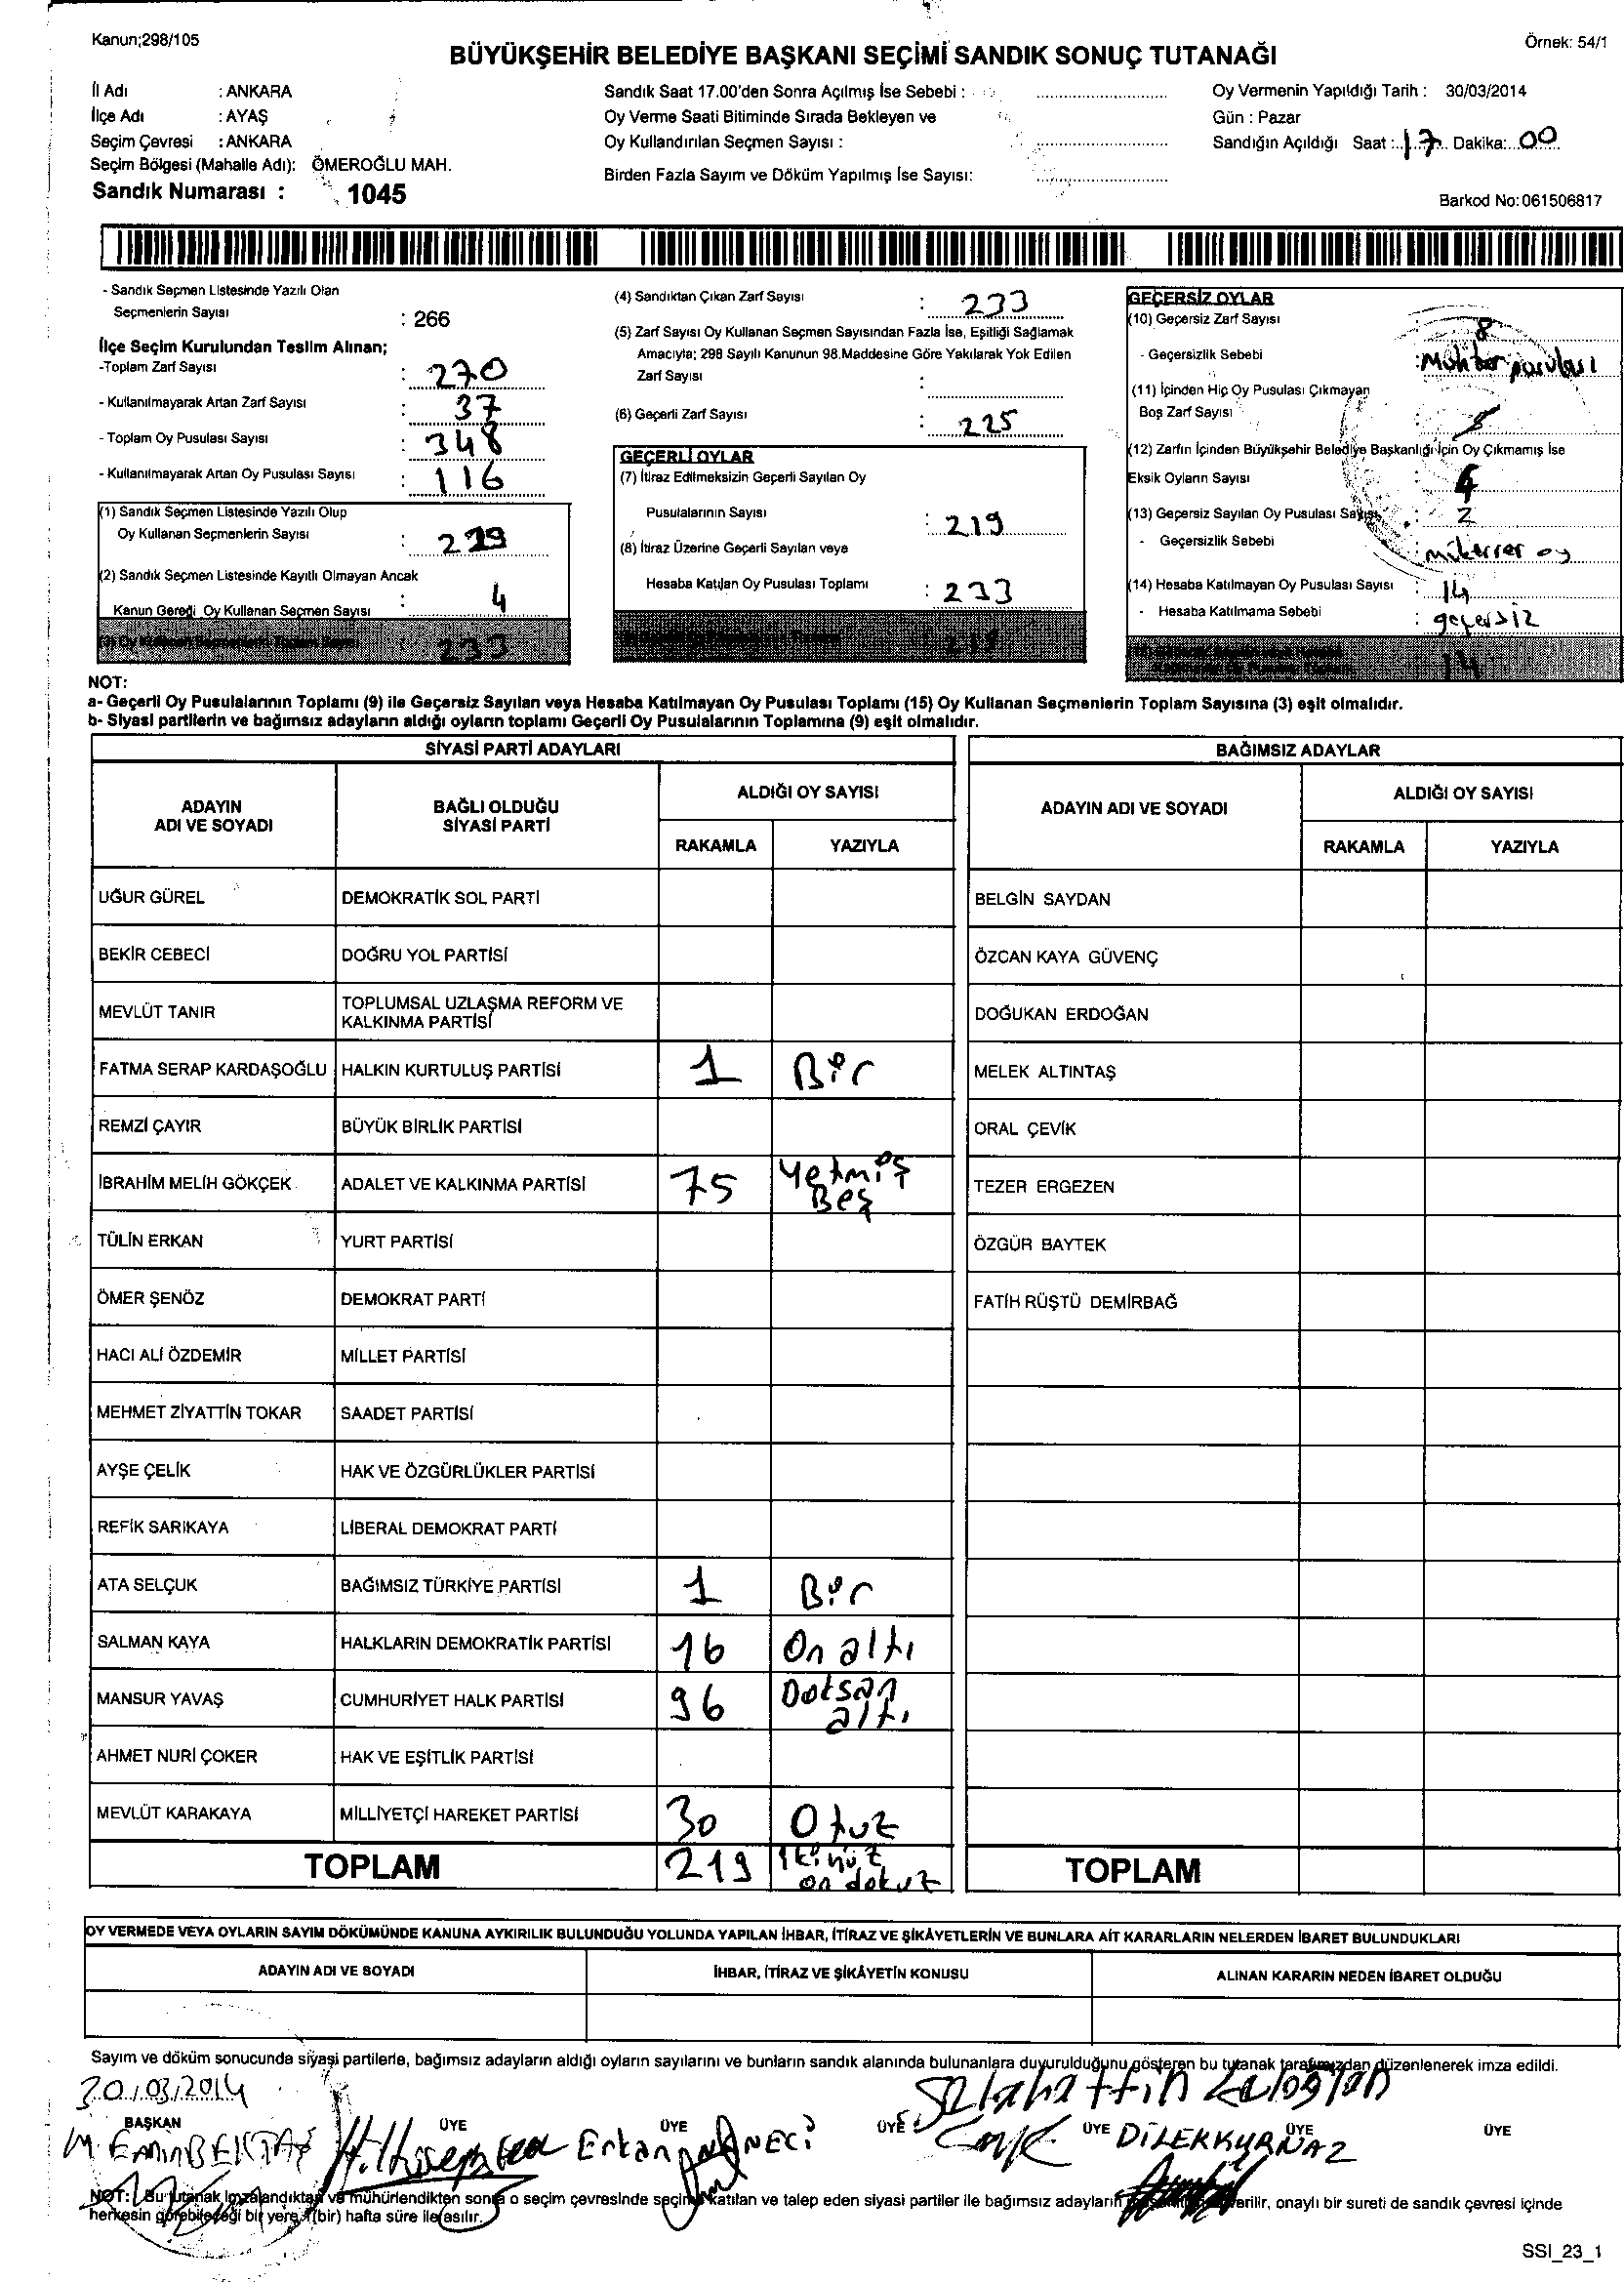 Kanun;298/105
Örnek: 54/1
BÜYÜKŞEHİR BELEDİYE BAŞKANI SEÇİMİ SANDIK SONUÇ TUTANAĞI
İl Adı : ANKARA
İlçe Adı : AYAŞ
Seçim Çevresi : ANKARA
Seçim Bölgesi (Mahalle Adı): ÖMEROĞLU MAH.
Sandık Numarası : 1045
Sandık Saat 17.00'den Sonra Açılmış İse Sebebi :
Oy Verme Saati Bitiminde Sırada Bekleyen ve
Oy Kullandırılan Seçmen Sayısı :
Birden Fazla Sayım ve Döküm Yapılmış İse Sayısı:
Oy Vermenin Yapıldığı Tarih : 30/03/2014
Gün : Pazar
Sandığın Açıldığı Saat : 17 Dakika: 00
Barkod No:061506817
- Sandık Seçmen Listesinde Yazılı Olan
Seçmenlerin Sayısı : 266
İlçe Seçim Kurulundan Teslim Alınan;
-Toplam Zarf Sayısı : 270
- Kullanılmayarak Artan Zarf Sayısı : 37
- Toplam Oy Pusulası Sayısı : 348
- Kullanılmayarak Artan Oy Pusulası Sayısı : 116
(1) Sandık Seçmen Listesinde Yazılı Olup
Oy Kullanan Seçmenlerin Sayısı : 229
(2) Sandık Seçmen Listesinde Kayıtlı Olmayan Ancak
Kanun Gereği Oy Kullanan Seçmen Sayısı : 4
(3) Oy Kullanan Seçmenlerin Toplam Sayısı : 233
(4) Sandıktan Çıkan Zarf Sayısı : 233
(5) Zarf Sayısı Oy Kullanan Seçmen Sayısından Fazla İse, Eşitliği Sağlamak
Amacıyla; 298 Sayılı Kanunun 98.Maddesine Göre Yakılarak Yok Edilen
Zarf Sayısı :
(6) Geçerli Zarf Sayısı : 225
GEÇERLİ OYLAR
(7) İtiraz Edilmeksizin Geçerli Sayılan Oy
Pusulalarının Sayısı : 219
(8) İtiraz Üzerine Geçerli Sayılan veya
Hesaba Katılan Oy Pusulası Toplamı : 233
219
GEÇERSİZ OYLAR
(10) Geçersiz Zarf Sayısı : 8
- Geçersizlik Sebebi : Muhtar pusulası
(11) İçinden Hiç Oy Pusulası Çıkmayan
Boş Zarf Sayısı :
(12) Zarfın İçinden Büyükşehir Belediye Başkanlığı İçin Oy Çıkmamış İse
Eksik Oyların Sayısı : 4
(13) Geçersiz Sayılan Oy Pusulası Sayısı : 2
- Geçersizlik Sebebi : mükerrer oy
(14) Hesaba Katılmayan Oy Pusulası Sayısı : 14
- Hesaba Katılmama Sebebi : geçersiz
14
NOT:
a- Geçerli Oy Pusulalarının Toplamı (9) ile Geçersiz Sayılan veya Hesaba Katılmayan Oy Pusulası Toplamı (15) Oy Kullanan Seçmenlerin Toplam Sayısına (3) eşit olmalıdır.
b- Siyasi partilerin ve bağımsız adayların aldığı oyların toplamı Geçerli Oy Pusulalarının Toplamına (9) eşit olmalıdır.
SİYASİ PARTİ ADAYLARI
BAĞIMSIZ ADAYLAR
ADAYIN ADI VE SOYADI
BAĞLI OLDUĞU SİYASİ PARTİ
ALDIĞI OY SAYISI
RAKAMLA YAZIYLA
ADAYIN ADI VE SOYADI
ALDIĞI OY SAYISI
RAKAMLA YAZIYLA
UĞUR GÜREL DEMOKRATİK SOL PARTİ BELGİN SAYDAN
BEKİR CEBECİ DOĞRU YOL PARTİSİ ÖZCAN KAYA GÜVENÇ
MEVLÜT TANIR TOPLUMSAL UZLAŞMA REFORM VE KALKINMA PARTİSİ DOĞUKAN ERDOĞAN
FATMA SERAP KARDAŞOĞLU HALKIN KURTULUŞ PARTİSİ 1 Bir MELEK ALTINTAŞ
REMZİ ÇAYIR BÜYÜK BİRLİK PARTİSİ ORAL ÇEVİK
İBRAHİM MELİH GÖKÇEK ADALET VE KALKINMA PARTİSİ 75 Yetmiş Beş TEZER ERGEZEN
TÜLİN ERKAN YURT PARTİSİ ÖZGÜR BAYTEK
ÖMER ŞENÖZ DEMOKRAT PARTİ FATİH RÜŞTÜ DEMİRBAĞ
HACI ALİ ÖZDEMİR MİLLET PARTİSİ
MEHMET ZİYATTİN TOKAR SAADET PARTİSİ
AYŞE ÇELİK HAK VE ÖZGÜRLÜKLER PARTİSİ
REFİK SARIKAYA LİBERAL DEMOKRAT PARTİ
ATA SELÇUK BAĞIMSIZ TÜRKİYE PARTİSİ 1 Bir
SALMAN KAYA HALKLARIN DEMOKRATİK PARTİSİ 16 On altı
MANSUR YAVAŞ CUMHURİYET HALK PARTİSİ 96 Doksan altı
AHMET NURİ ÇOKER HAK VE EŞİTLİK PARTİSİ
MEVLÜT KARAKAYA MİLLİYETÇİ HAREKET PARTİSİ 30 Otuz
TOPLAM 219 ikiyüz on dokuz TOPLAM
OY VERMEDE VEYA OYLARIN SAYIM DÖKÜMÜNDE KANUNA AYKIRILIK BULUNDUĞU YOLUNDA YAPILAN İHBAR, İTİRAZ VE ŞİKÂYETLERİN VE BUNLARA AİT KARARLARIN NELERDEN İBARET BULUNDUKLARI
ADAYIN ADI VE SOYADI İHBAR, İTİRAZ VE ŞİKÂYETİN KONUSU ALINAN KARARIN NEDEN İBARET OLDUĞU
Sayım ve döküm sonucunda siyasi partilerle, bağımsız adayların aldığı oyların sayılarını ve bunların sandık alanında bulunanlara duyurulduğunu gösteren bu tutanak tarafımızdan düzenlenerek imza edildi.
30/03/2014
Selahattin
BAŞKAN ÜYE ÜYE ÜYE ÜYE ÜYE ÜYE
M. EMİN BEKTAŞ Erkan DİLEK KURNAZ
NOT: Bu tutanak imzalandıktan ve mühürlendikten sonra o seçim çevresinde seçime katılan ve talep eden siyasi partiler ile bağımsız adayların verilir, onaylı bir sureti de sandık çevresi içinde
herkesin görebileceği bir yere 1(bir) hafta süre ile asılır.
SSI_23_1